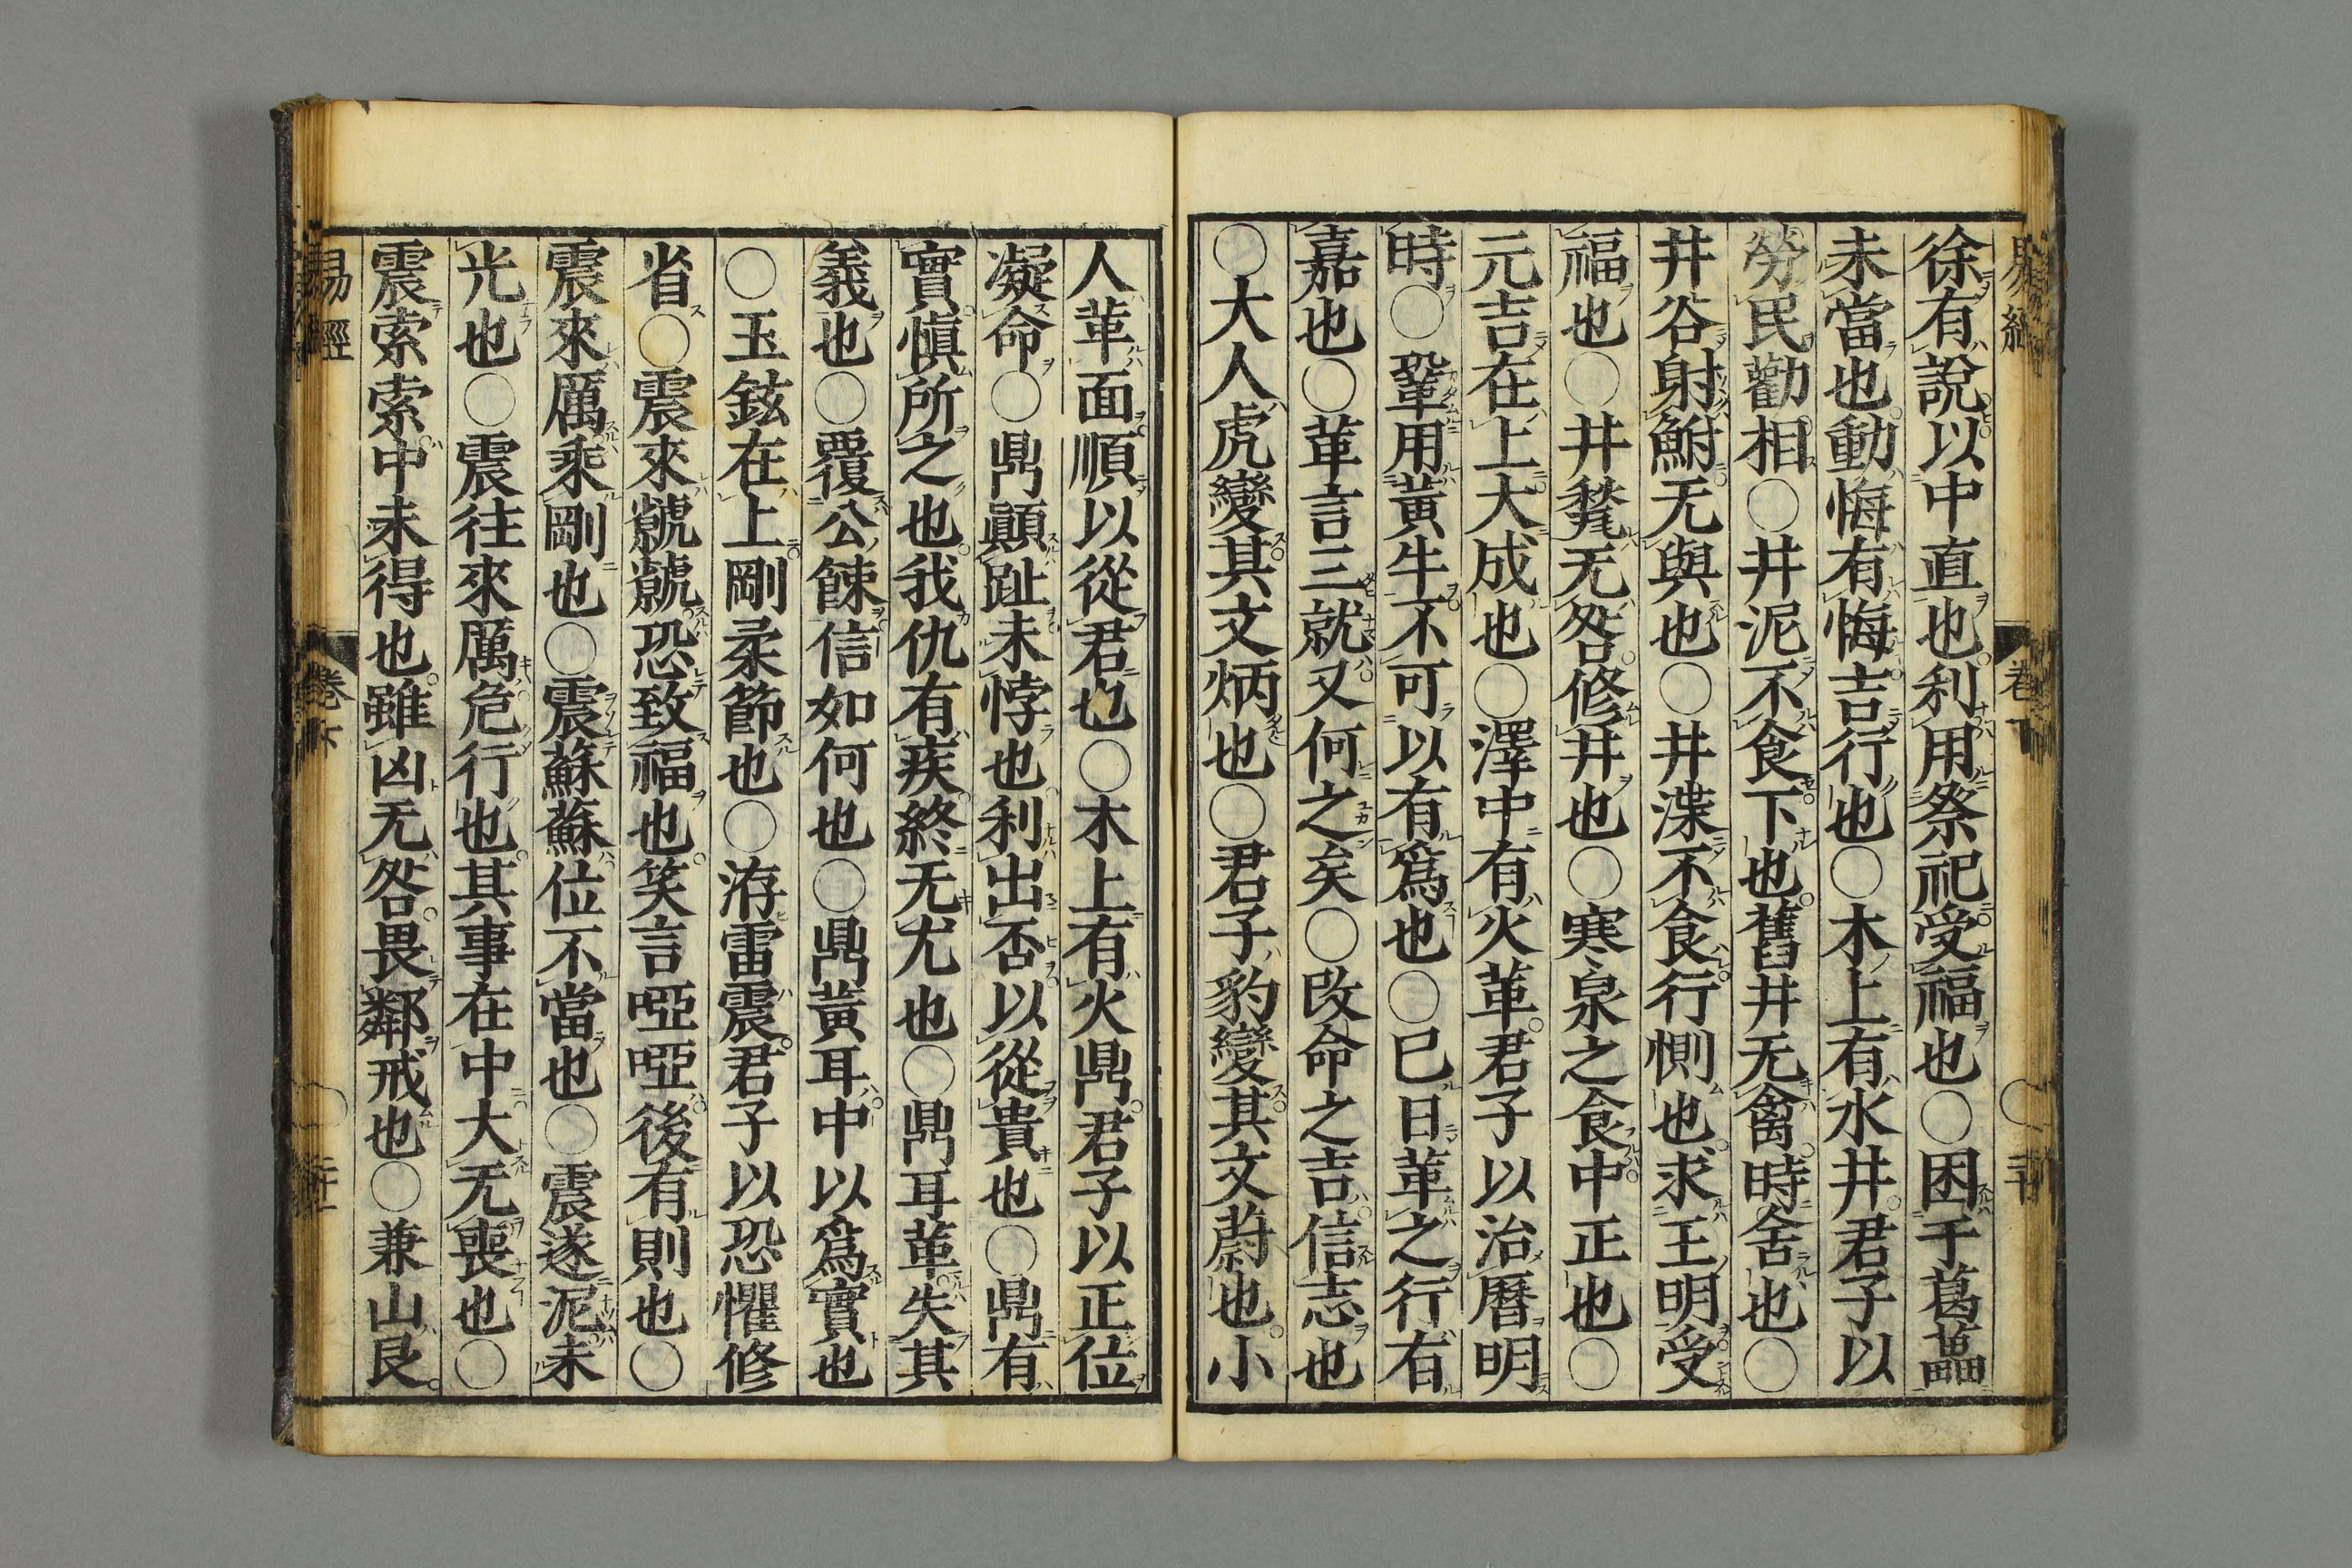 徐有說以中直也利用祭祀受福也○困于葛藟
未當也動悔有悔吉行也○木上有水井君子以
勞民勸相○井泥不食下也舊井无禽時舍也○
井谷射鮒无與也○井渫不食行惻也求王明受
福也○井甃无咎修井也○寒泉之食中正也○
元吉在上大成也○澤中有火革君子以治曆明
時○鞏用黃牛不可以有爲也○已日革之行有
嘉也○革言三就又何之矣○改命之吉信志也
○大人虎變其文炳也○君子豹變其文蔚也小
人革面順以從君也○木上有火鼎君子以正位
凝命○鼎顚趾未悖也利出否以從貴也○鼎有
實愼所之也我仇有疾終无尤也○鼎耳革失其
義也○覆公餗信如何也○鼎黃耳中以爲實也
○玉鉉在上剛柔節也○洊雷震君子以恐懼修
省○震來虩虩恐致福也笑言啞啞後有則也○
震來厲乘剛也○震蘇蘇位不當也○震遂泥未
光也○震往來厲危行也其事在中大无喪也○
震索索中未得也雖凶无咎畏鄰戒也○兼山艮
易經